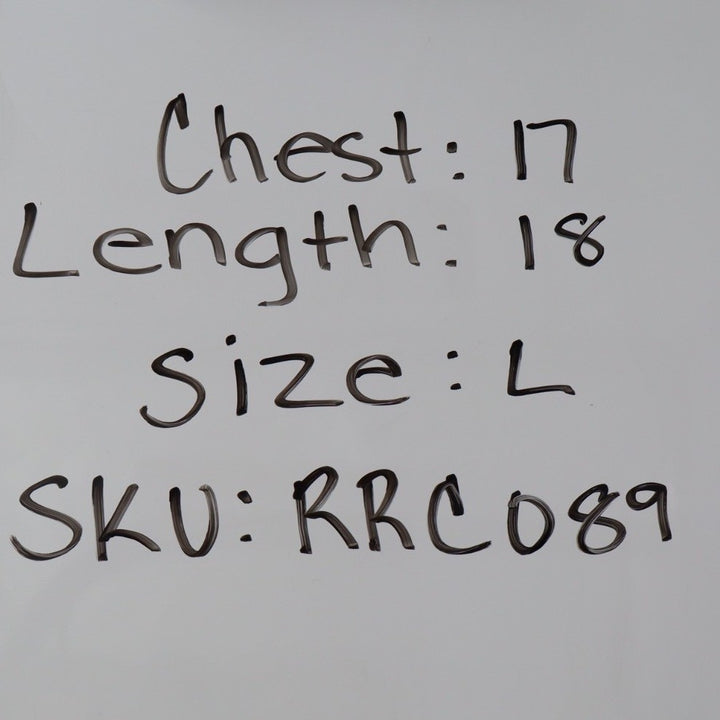 Chest: 17
Length: 18
Size: L
SKU: RRC089